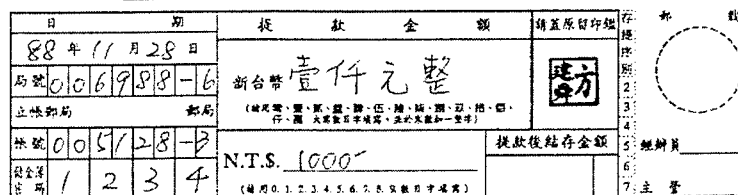 日 期
88 年 11 月 28 日
局號 006988-6
立帳郵局 郵局
帳號 005128-3
儲金簿密碼 1234
提款金額
新台幣 壹仟元整
(請用零、壹、貳、叁、肆、伍、陸、柒、捌、玖、拾、佰、
仟、萬 大寫數目字填寫,並於末數加一整字)
N.T.$. 1000-
(請用0.1.2.3.4.5.6.7.8.9.數目字填寫)
請蓋原留印鑑
方建舜
提款後結存金額
存提序別
1
2
3
4
5
6
7
郵戳
經辦員
主管